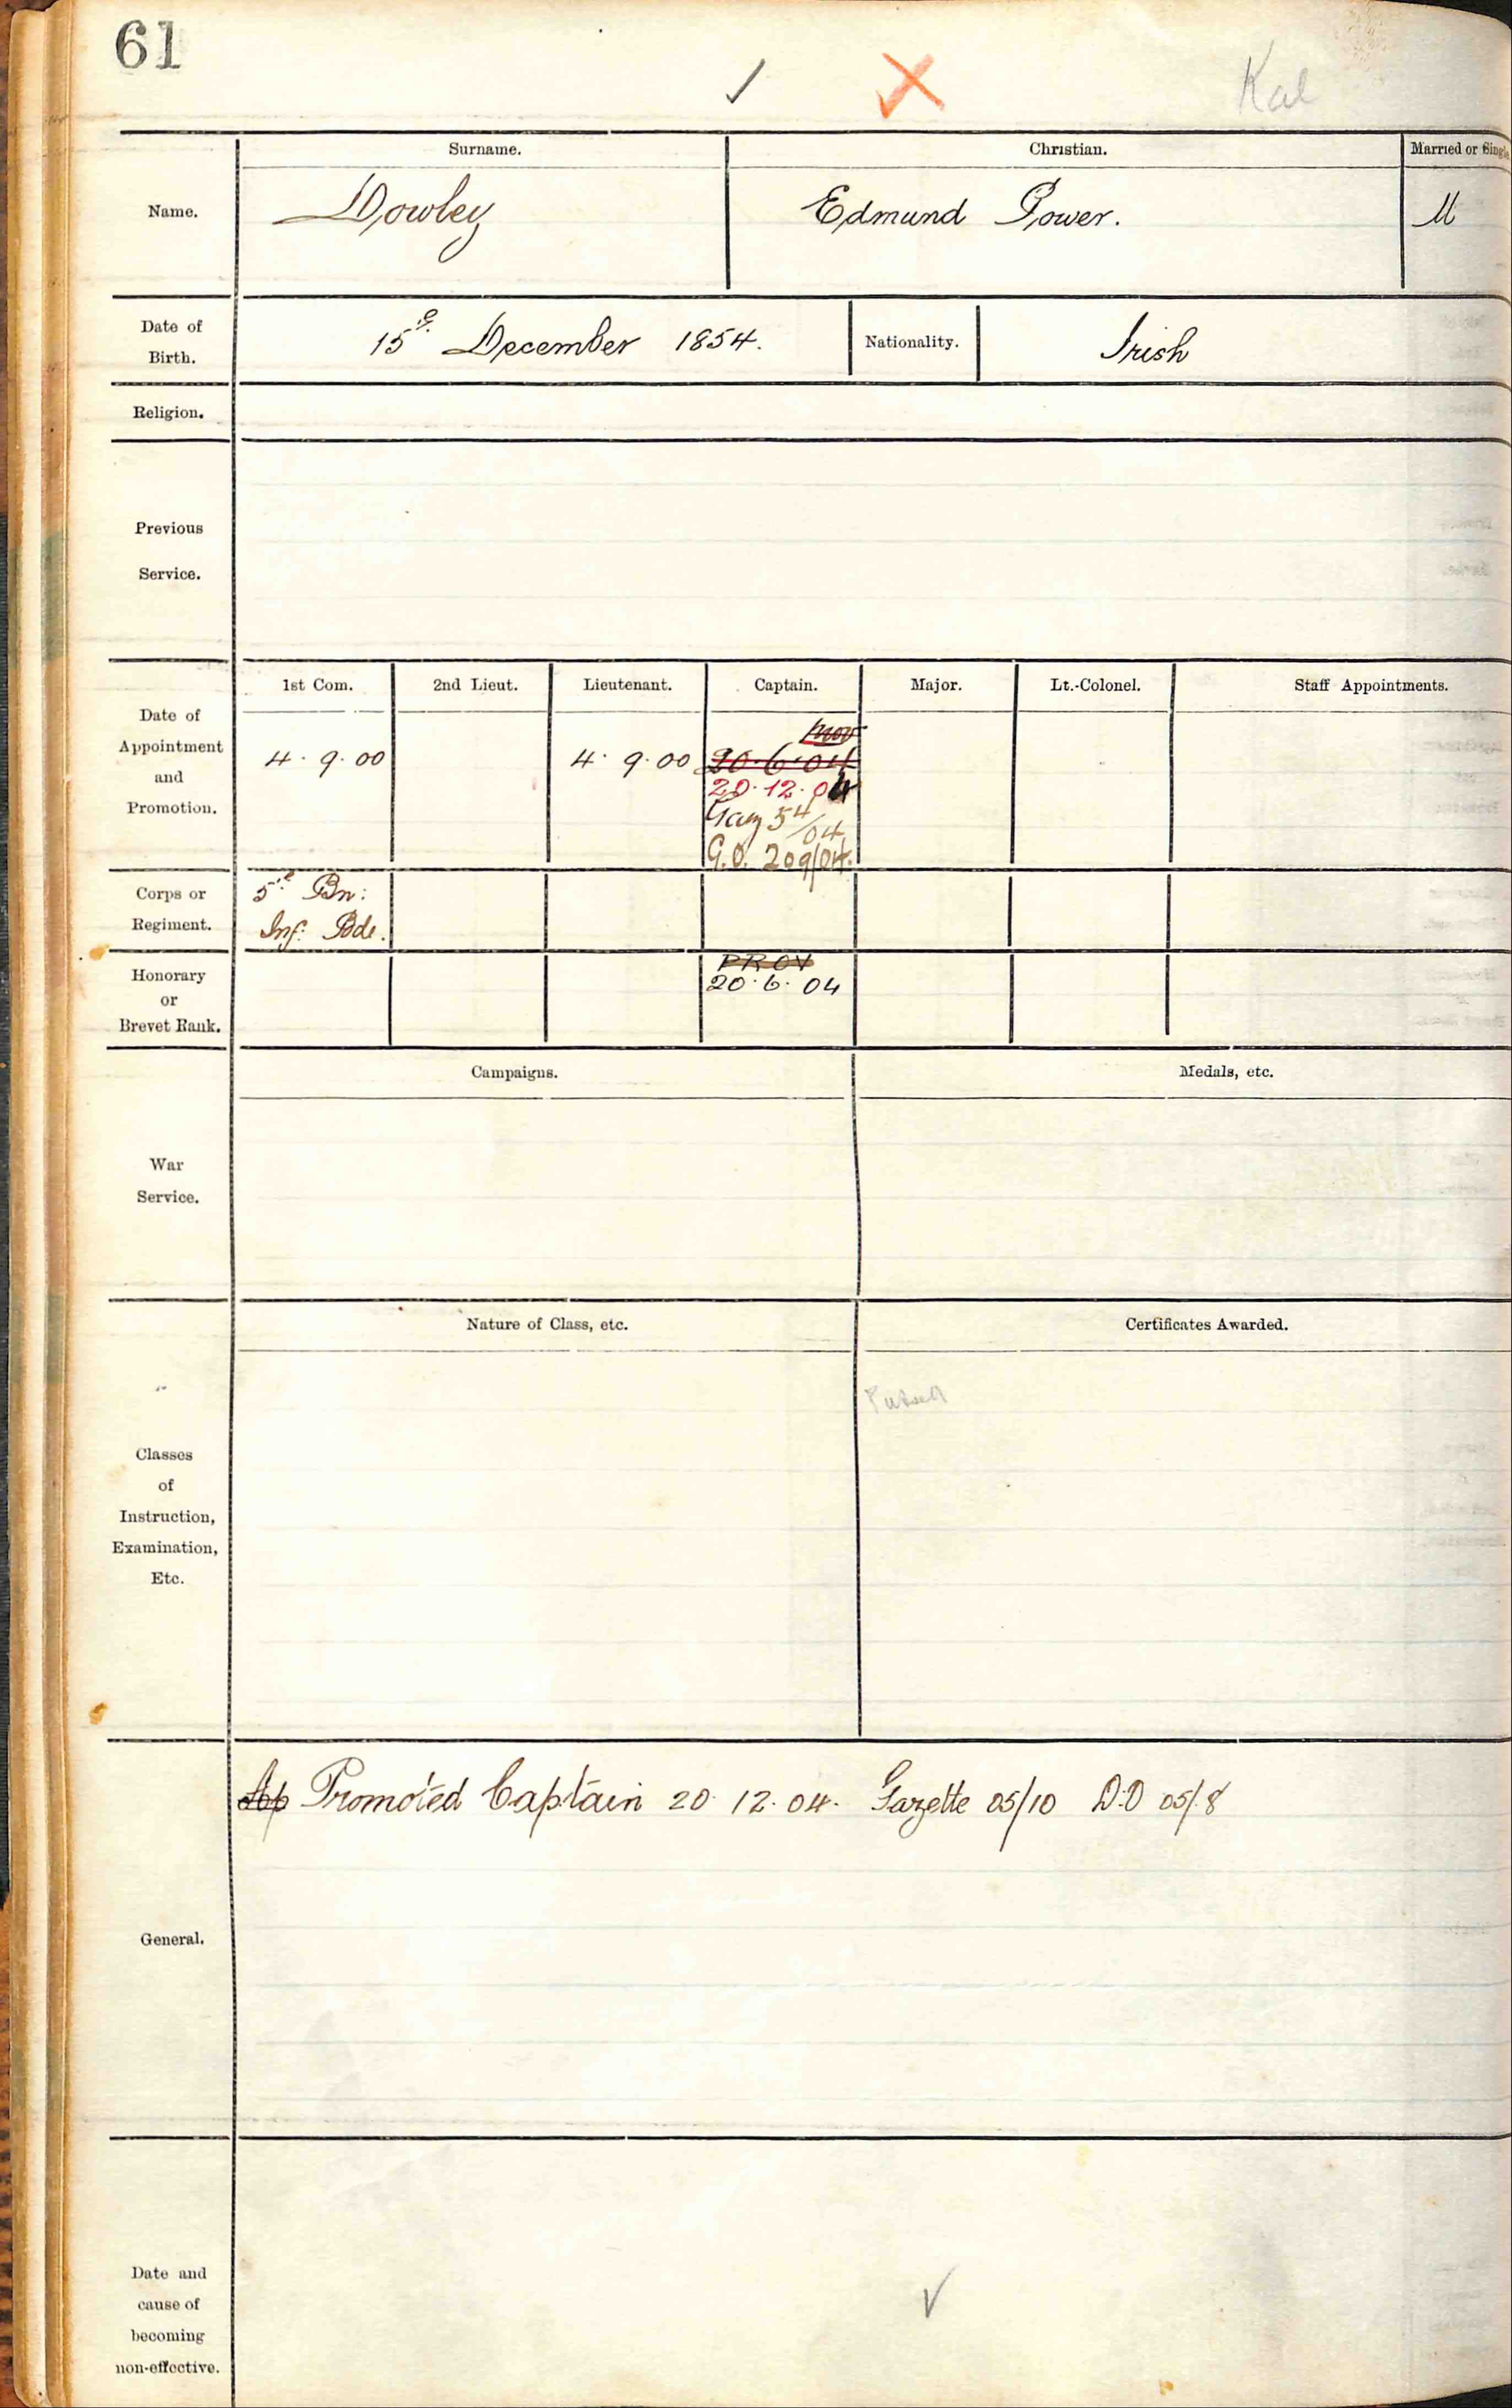 61
Kal
Surname. Christian. Married or Single
Name. Dowley Edmund Power. M
Date of Birth. 15th December 1854. Nationality. Irish
Religion.
Previous
Service.
1st Com. 2nd Lieut. Lieutenant. Captain. Major. Lt.-Colonel. Staff Appointments.
Date of
Appointment
and
Promotion.
4. 9. 00 4. 9. 00 20.6.04
20.12.04
Gaz 54/04
G.O. 209/04.
Corps or
Regiment.
5th Bn:
Inf: Bde.
Honorary
or
Brevet Rank.
PROV
20.6.04
Campaigns. Medals, etc.
War
Service.
Nature of Class, etc. Certificates Awarded.
Classes
of
Instruction,
Examination,
Etc.
General.
App Promoted Captain 20.12.04. Gazette 05/10 D.O 05/8
Date and
cause of
becoming
non-effective.